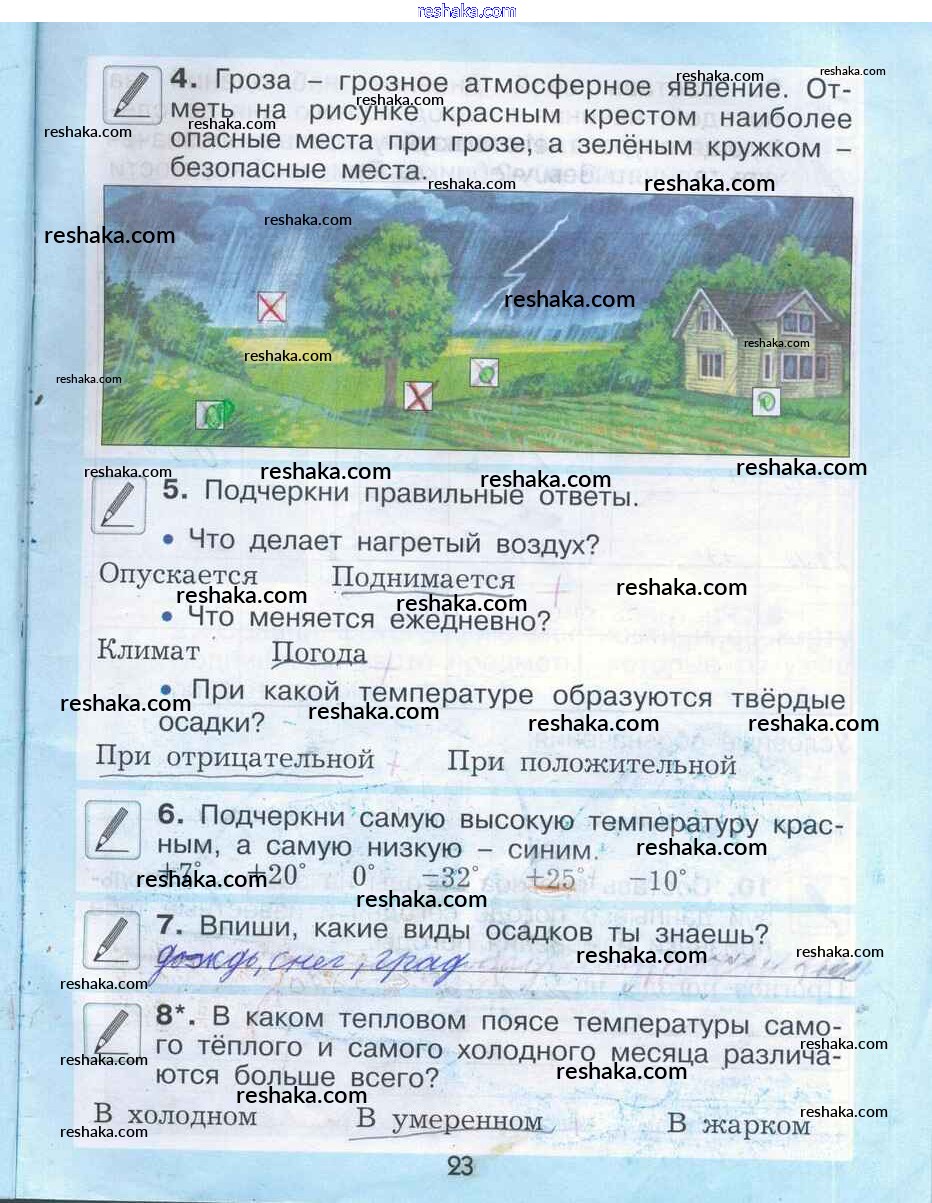 reshaka.com
4. Гроза – грозное атмосферное явление. От-
меть на рисунке красным крестом наиболее
опасные места при грозе, а зелёным кружком –
безопасные места.
5. Подчеркни правильные ответы.
• Что делает нагретый воздух?
Опускается Поднимается
• Что меняется ежедневно?
Климат Погода
• При какой температуре образуются твёрдые
осадки?
При отрицательной При положительной
6. Подчеркни самую высокую температуру крас-
ным, а самую низкую – синим.
+7° +20° 0° −32° +25° −10°
7. Впиши, какие виды осадков ты знаешь?
дождь, снег, град
8*. В каком тепловом поясе температуры само-
го тёплого и самого холодного месяца различа-
ются больше всего?
В холодном В умеренном В жарком
23